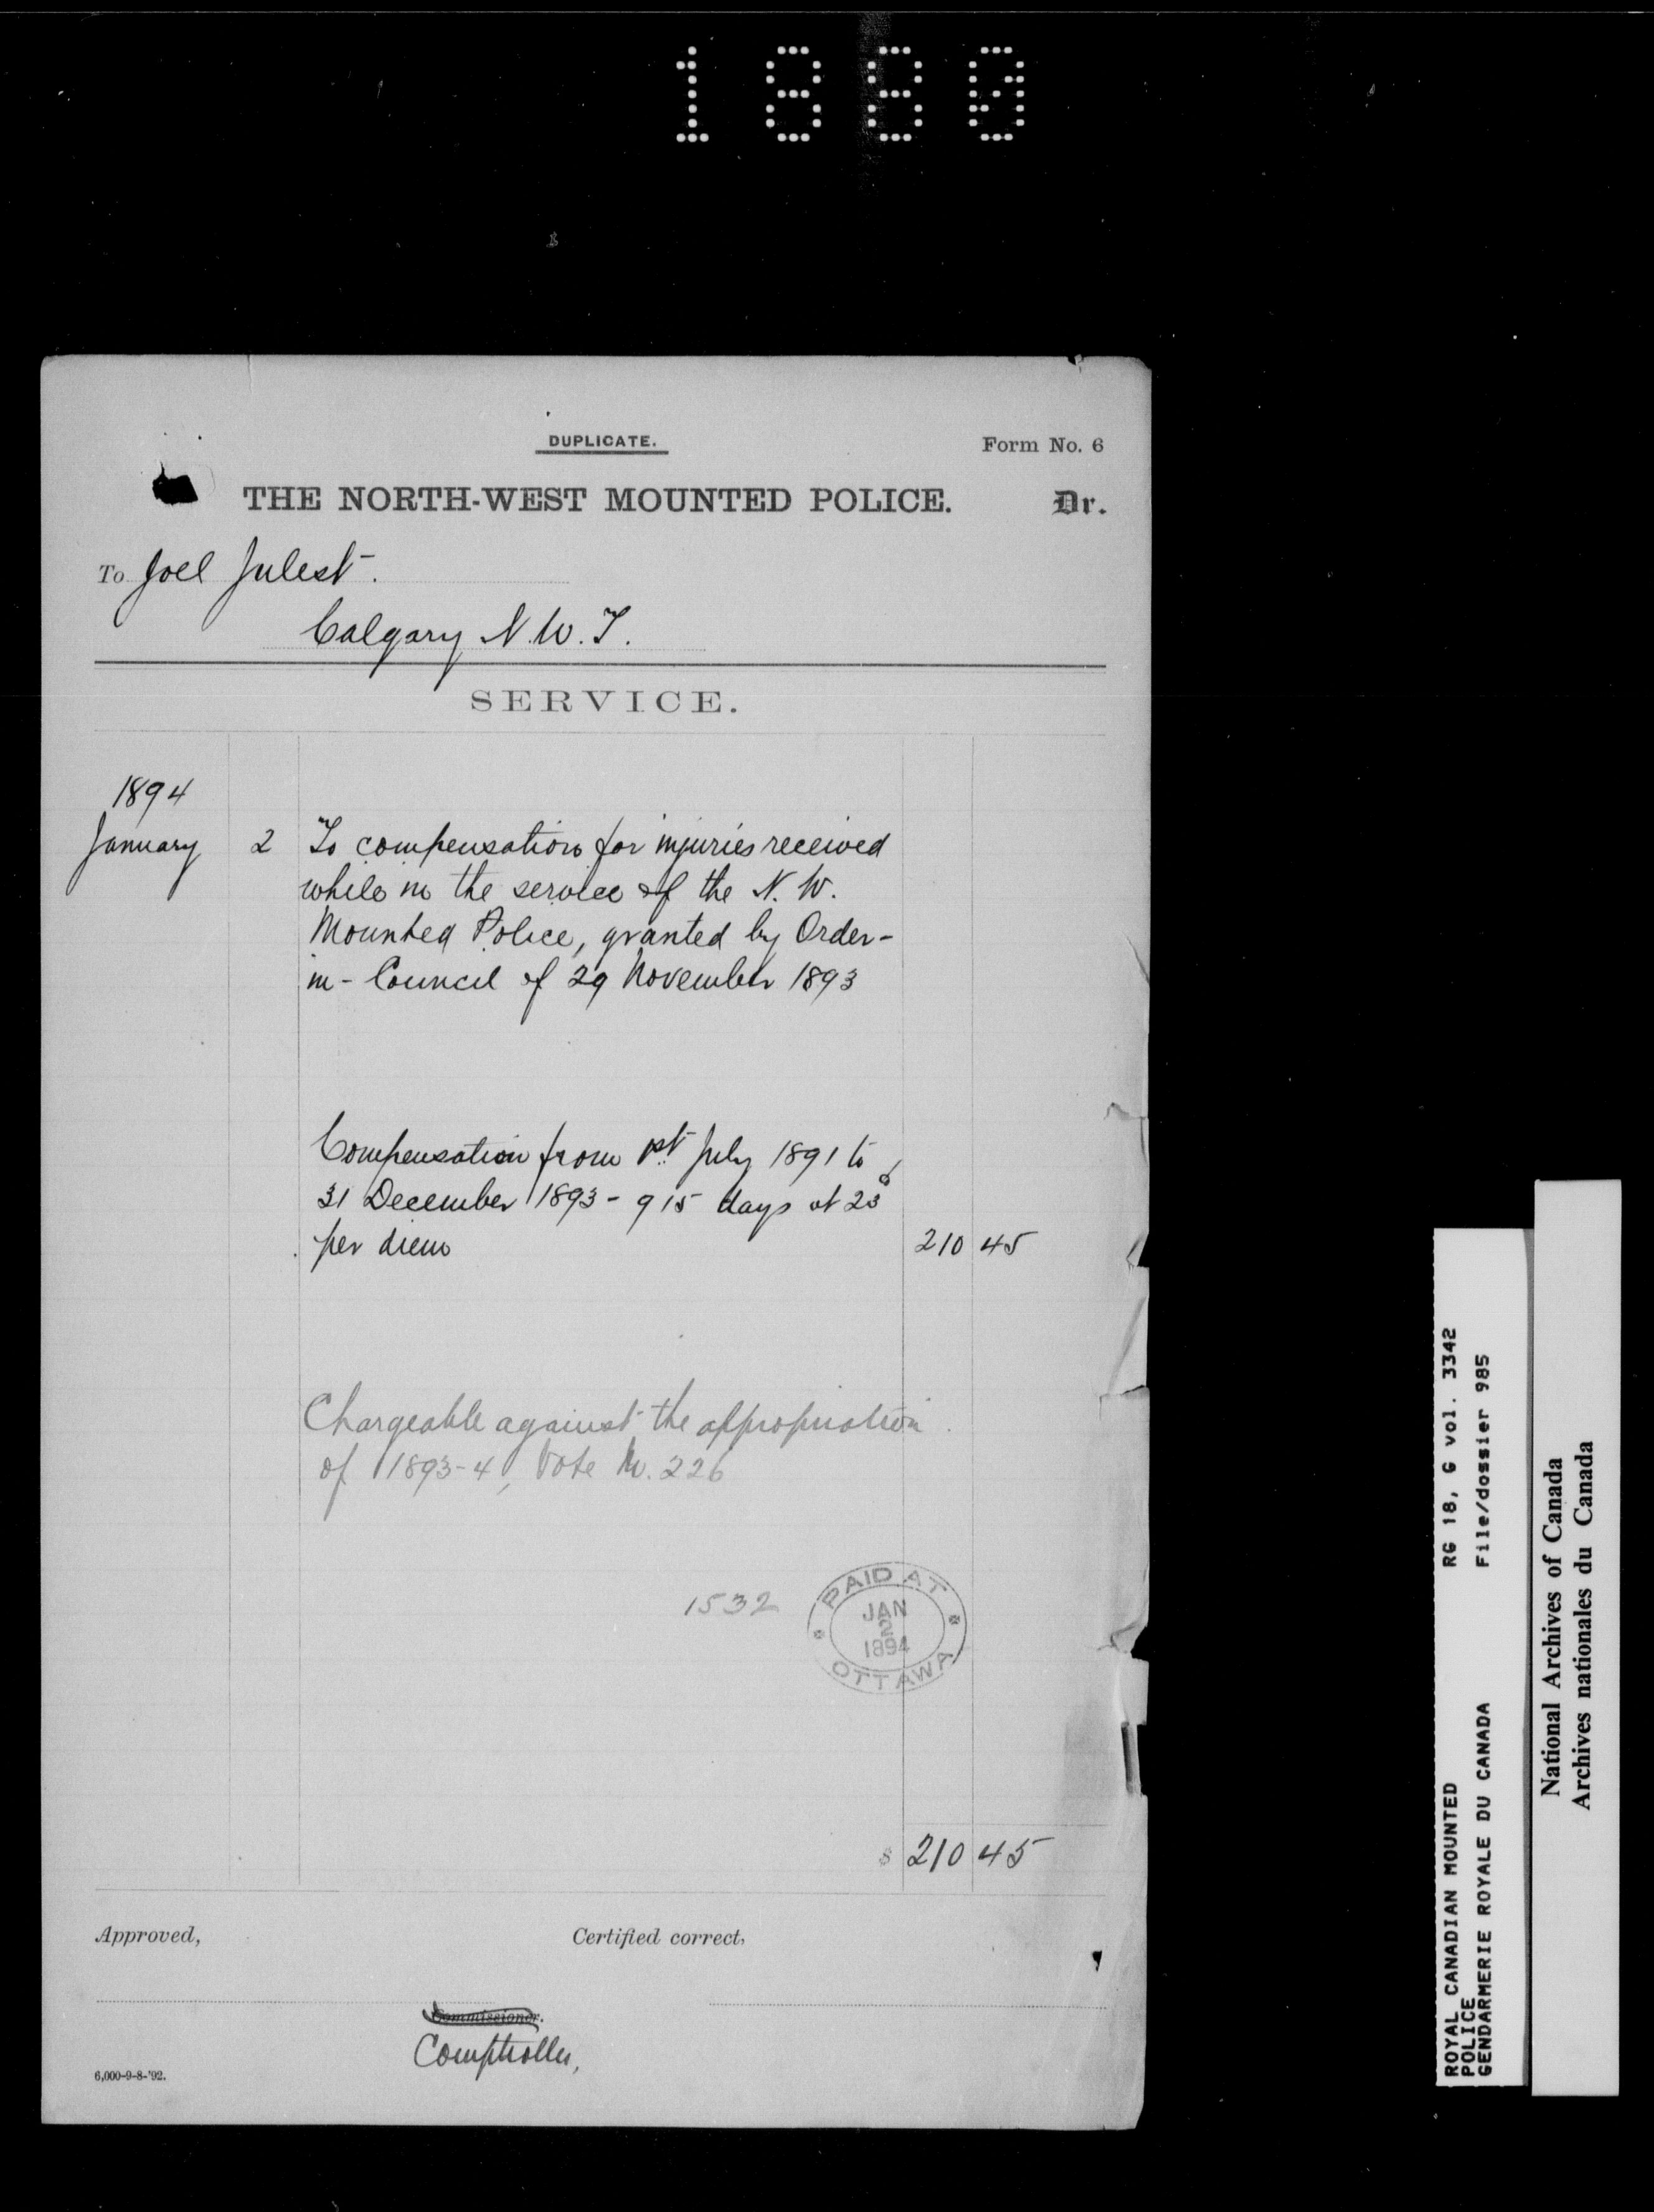 1880
DUPLICATE.
Form No. 6
THE NORTH-WEST MOUNTED POLICE. Dr.
To Joel Julest.
Calgary N.W.T.
SERVICE.
1894
January 2 To compensation for injuries received
while in the service of the N. W.
Mounted Police, granted by Order-
in-Council of 29 November 1893
Compensation from 1st July 1891 to
31 December 1893 - 915 days at 23¢
per diem 210 45
Chargeable against the appropriation
of 1893-4, Vote No. 226
1532
PAID AT
JAN
2
1894
OTTAWA
$ 210 45
Approved,
Certified correct,
Commissioner.
Comptroller,
6,000-9-8-'92.
ROYAL CANADIAN MOUNTED RG 18, G vol. 3342
POLICE
GENDARMERIE ROYALE DU CANADA File/dossier 985
National Archives of Canada
Archives nationales du Canada